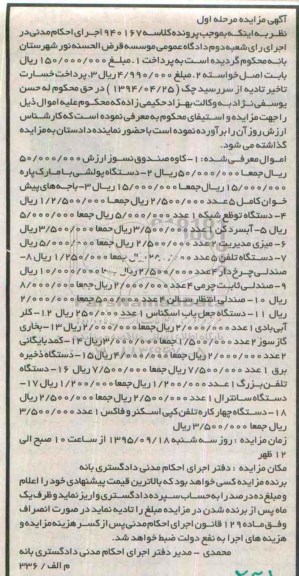 آگهی مزایده مرحله اول
نظر به اینکه بموجب پرونده کلاسه ۹۴۰۱۶۷ اجرای احکام مدنی در
اجرای رای شعبه دوم دادگاه عمومی موسسه قرض الحسنه نور شهرستان
بانه محکوم گردیده است به پرداخت ۱. مبلغ ۱۵۰/۰۰۰/۰۰۰ ریال
بابت اصل خواسته ۲. مبلغ ۴/۹۹۰/۰۰۰ ریال ۳. پرداخت خسارت
تاخیر تادیه از سررسید چک (۱۳۹۴/۰۴/۲۵) در حق محکوم له حسن
یوسفی نژاد به وکالت بهزاد حکیمی زاده که محکوم علیه اموال ذیل
را جهت مزایده و استیفای محکوم به معرفی نموده است که کارشناس
ارزش روز آن را برآورده نموده است با حضور نماینده دادستان به مزایده
گذاشته می شود.
اموال معرفی شده: ۱-گاوه صندوق نسوز ارزش ۵۰/۰۰۰/۰۰۰
ریال جمعا ۵۰/۰۰۰/۰۰۰ ریال ۲- دستگاه پولشی با مارک پاره
۱۵/۰۰۰/۰۰۰ ریال جمعا ۱۵/۰۰۰/۰۰۰ ریال ۳-باجه های پیش
خوان کامل ۵ عدد ۲/۵۰۰/۰۰۰ ریال جمعا ۱۲/۵۰۰/۰۰۰ ریال
۴- دستگاه توقع شبکه ۱ عدد ۵/۰۰۰/۰۰۰ ریال جمعا ۵/۰۰۰/۰۰۰
ریال ۵- آبسردکن ۱ عدد ۳/۵۰۰/۰۰۰ ریال جمعا ۳/۵۰۰/۰۰۰ ریال
۶- میزی مدیریت ۲ عدد ۲/۵۰۰/۰۰۰ ریال جمعا ۵/۰۰۰/۰۰۰ ریال
۷- دستگاه تلفن ۵ عدد جمعا ۱/۲۵۰/۰۰۰ ریال ۸-
صندلی چرخ دار ۴ عدد ۲/۵۰۰/۰۰۰ ریال ۱۰/۰۰۰/۰۰۰ ریال
۹- صندلی ثابت چرمی ۴ عدد ۲/۰۰۰/۰۰۰ ریال جمعا ۸/۰۰۰/۰۰۰
ریال ۱۰- صندلی انتظار سالن ۴ عدد ۵۰۰/۰۰۰ ریال جمعا ۲/۰۰۰/۰۰۰
ریال ۱۱- دستگاه جعل یاب اسکناس ۱ عدد ۲۵۰/۰۰۰ ریال ۱۲- کلر
آبی بادی ۱ عدد ۲/۰۰۰/۰۰۰ ریال جمعا ۲/۰۰۰/۰۰۰ ریال ۱۳-بخاری
گازسوز ۲ عدد ۱/۵۰۰/۰۰۰ ریال جمعا ۳/۰۰۰/۰۰۰ ریال ۱۴- کمد بایگانی
۲ عدد ۲/۰۰۰/۰۰۰ ریال جمعا ۴/۰۰۰/۰۰۰ ریال ۱۵-دستگاه ذخیره
برق ۱ عدد ۷/۵۰۰/۰۰۰ ریال جمعا ۷/۵۰۰/۰۰۰ ریال ۱۶- دستگاه
تلفن بزرگ ۱ عدد ۱/۲۰۰/۰۰۰ ریال جمعا ۱/۲۰۰/۰۰۰ ریال ۱۷-
دستگاه سانترال ۱ عدد ۲/۵۰۰/۰۰۰ ریال جمعا ۲/۵۰۰/۰۰۰ ریال
۱۸- دستگاه چهار کاره تلفن کپی اسکنر و فاکس ۱ عدد ۳/۵۰۰/۰۰۰
ریال جمعا ۳/۵۰۰/۰۰۰ ریال
زمان مزایده: روز سه شنبه ۱۳۹۵/۰۹/۱۸ از ساعت ۱۰ صبح الی
۱۲ ظهر
مکان مزایده: دفتر اجرای احکام مدنی دادگستری بانه
برنده مزایده کسی خواهد بود که بالاترین قیمت پیشنهادی خود را اعلام
و مبلغ ده درصد را به حساب سپرده دادگستری واریز نماید و ظرف یک
ماه پس از برنده شدن در مزایده مبلغ را تادیه نماید در صورت انصراف
وفق ماده ۱۲۹ قانون اجرای احکام مدنی پس از کسر هزینه مزایده و
هزینه های اجرا به نفع دولت ضبط خواهد شد.
محمدی - مدیر دفتر اجرای احکام مدنی دادگستری بانه
م الف / ۳۳۶